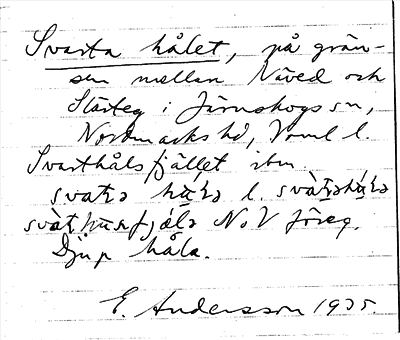 Svarta hålet, på grän-
sen mellan Näved och
Slärteg i Järnskogs sn,
Nordmarks hd, Vrml l.
Svarthålsfjället ibm.
svaṭə hɯ̄ḷə l. svàṭəhɯ́ḷə
svàṭhɯḷsfjälə NoV föreg.
Djup håla.
E. Andersson 1935.